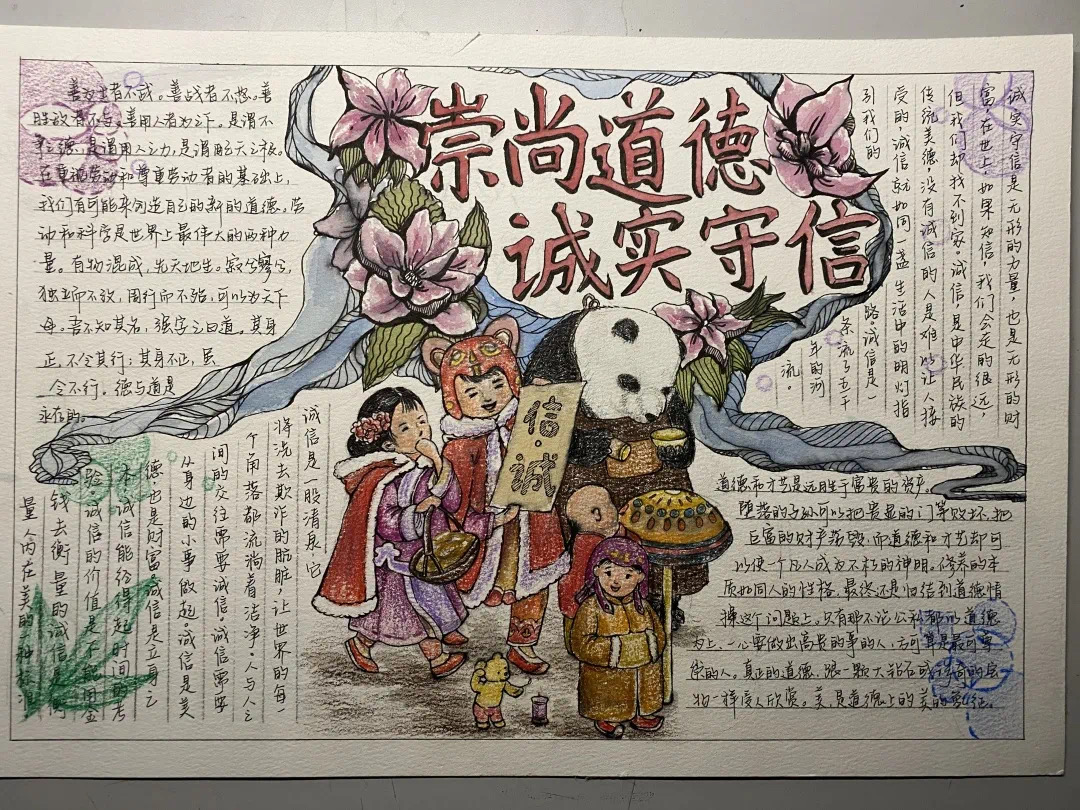 崇尚道德
诚实守信
善为士者不武。善战者不怒。善
胜敌者不与。善用人者为之下。是谓不
争之德,是谓用人之力,是谓配天之极。
在重视劳动和尊重劳动者的基础上,
我们有可能来创造自己的新的道德。劳
动和科学是世界上最伟大的两种力
量。有物混成,先天地生。寂兮寥兮,
独立而不改,周行而不殆,可以为天下
母。吾不知其名,强字之曰道。其身
正,不令其行;其身不正,虽
令不行。德与道是
永存的。
诚实守信是无形的力量,也是无形的财
富,在世上,如果知信,我们会走的很远,
但我们却找不到家。诚信,是中华民族的
传统美德,没有诚信的人是难以让人接
受的,诚信就如同一盏生活中的明灯指
引我们的
路。诚信是一
条流了五千
年的河
流。
信·诚
诚信是一股清泉,它
将洗去欺诈的肮脏,让世界的每一
个角落都流淌着洁净。人与人之
间的交往需要诚信。诚信需要
从身边的小事做起。诚信是美
德也是财富。诚信是立身之
本。诚信能给得起时间的考
验,诚信的价值是不能用金
钱去衡量的诚信是
量人内在美的一种
道德和才艺是远胜于富贵的资产。
堕落的子孙可以把贵显的门第败坏,把
巨富的财产荡毁,而道德和才艺却可
以使一个凡人成为不朽的神明。修养的本
质如同人的性格,最终还是归结到道德情
操这个问题上。只有那不论公私都以道德
为上,一心要做出高贵的事的人,方可算是最可尊
崇的人。真正的道德,跟一颗大钻石或
物一样,使人欣赏。美,是道德上的美的